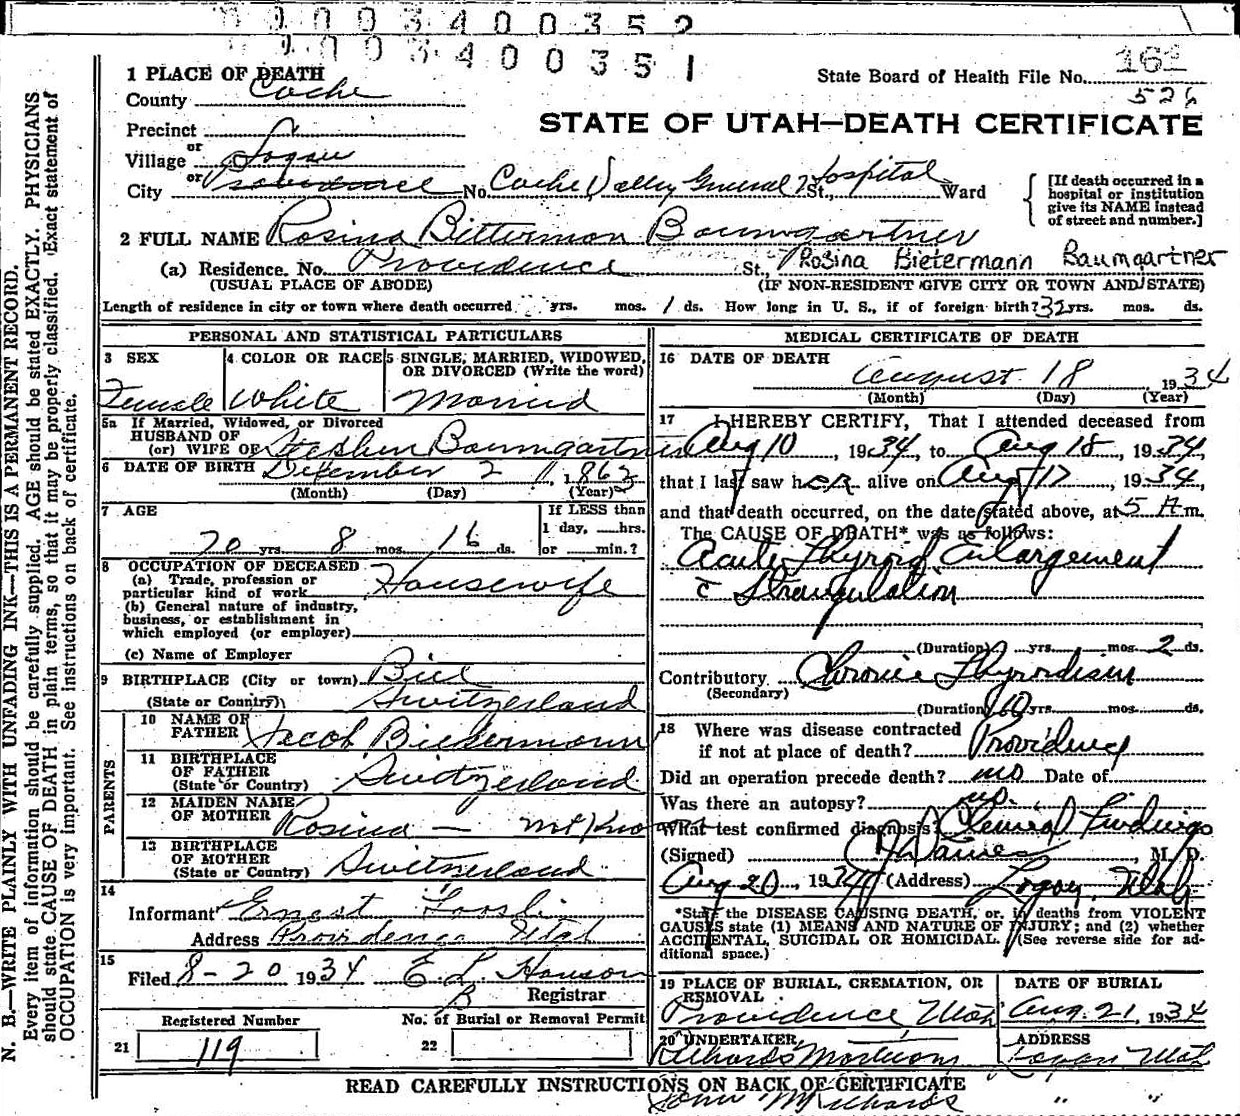 0 0 0 3 4 0 0 3 5 2
0 0 0 3 4 0 0 3 5 1
1 PLACE OF DEATH
County Cache
State Board of Health File No. 161
526
STATE OF UTAH—DEATH CERTIFICATE
Precinct
or
Village Logan
or
City Providence No. Cache Valley General Hospital St., Ward
[If death occurred in a hospital or institution give its NAME instead of street and number.]
2 FULL NAME Rosina Bitterman Baumgartner
(a) Residence. No. Providence St., Rosina Bietermann Baumgartner
(USUAL PLACE OF ABODE) (IF NON-RESIDENT GIVE CITY OR TOWN AND STATE)
Length of residence in city or town where death occurred yrs. mos. 1 ds. How long in U. S., if of foreign birth? 32 yrs. mos. ds.
PERSONAL AND STATISTICAL PARTICULARS
3 SEX
Female
4 COLOR OR RACE
White
5 SINGLE, MARRIED, WIDOWED, OR DIVORCED (Write the word)
Married
5a If Married, Widowed, or Divorced
HUSBAND OF
(or) WIFE OF Stephen Baumgartner
6 DATE OF BIRTH December 2, 1863
(Month) (Day) (Year)
7 AGE
70 yrs. 8 mos. 16 ds.
If LESS than
1 day, hrs.
or min.?
8 OCCUPATION OF DECEASED
(a) Trade, profession or
particular kind of work Housewife
(b) General nature of industry,
business, or establishment in
which employed (or employer)
(c) Name of Employer
9 BIRTHPLACE (City or town) Biel
(State or Country) Switzerland
PARENTS
10 NAME OF
FATHER Jacob Bietermann
11 BIRTHPLACE
OF FATHER
(State or Country) Switzerland
12 MAIDEN NAME
OF MOTHER Rosina — not known
13 BIRTHPLACE
OF MOTHER
(State or Country) Switzerland
14
Informant Ernest Loosli
Address Providence Utah
15
Filed 8-20 1934 E. L. Hanson
B Registrar
Registered Number
21 119
No. of Burial or Removal Permit
22
MEDICAL CERTIFICATE OF DEATH
16 DATE OF DEATH
August 18 1934
(Month) (Day) (Year)
17 I HEREBY CERTIFY, That I attended deceased from
Aug 10, 1934, to Aug 18, 1934,
that I last saw her alive on Aug 17, 1934,
and that death occurred, on the date stated above, at 5 A m.
The CAUSE OF DEATH* was as follows:
Acute Thyroid Enlargement
c̄ Strangulation
(Duration) yrs. mos. 2 ds.
Contributory Chronic Thyroidism
(Secondary)
(Duration) 60 yrs. mos. ds.
18 Where was disease contracted
if not at place of death? Providence
Did an operation precede death? no Date of
Was there an autopsy? no
What test confirmed diagnosis? Clinical Findings
(Signed) M. D.
Aug 20, 1934 (Address) Logan, Utah
*State the DISEASE CAUSING DEATH, or, in deaths from VIOLENT
CAUSES state (1) MEANS AND NATURE OF INJURY; and (2) whether
ACCIDENTAL, SUICIDAL OR HOMICIDAL. (See reverse side for ad-
ditional space.)
19 PLACE OF BURIAL, CREMATION, OR
REMOVAL
Providence Utah
DATE OF BURIAL
Aug. 21, 1934
20 UNDERTAKER
Richards Mortuary
John M Richards
ADDRESS
Logan Utah
" "
READ CAREFULLY INSTRUCTIONS ON BACK OF CERTIFICATE
N. B.—WRITE PLAINLY WITH UNFADING INK—THIS IS A PERMANENT RECORD.
Every item of information should be carefully supplied. AGE should be stated EXACTLY. PHYSICIANS
should state CAUSE OF DEATH in plain terms, so that it may be properly classified. Exact statement of
OCCUPATION is very important. See instructions on back of certificate.